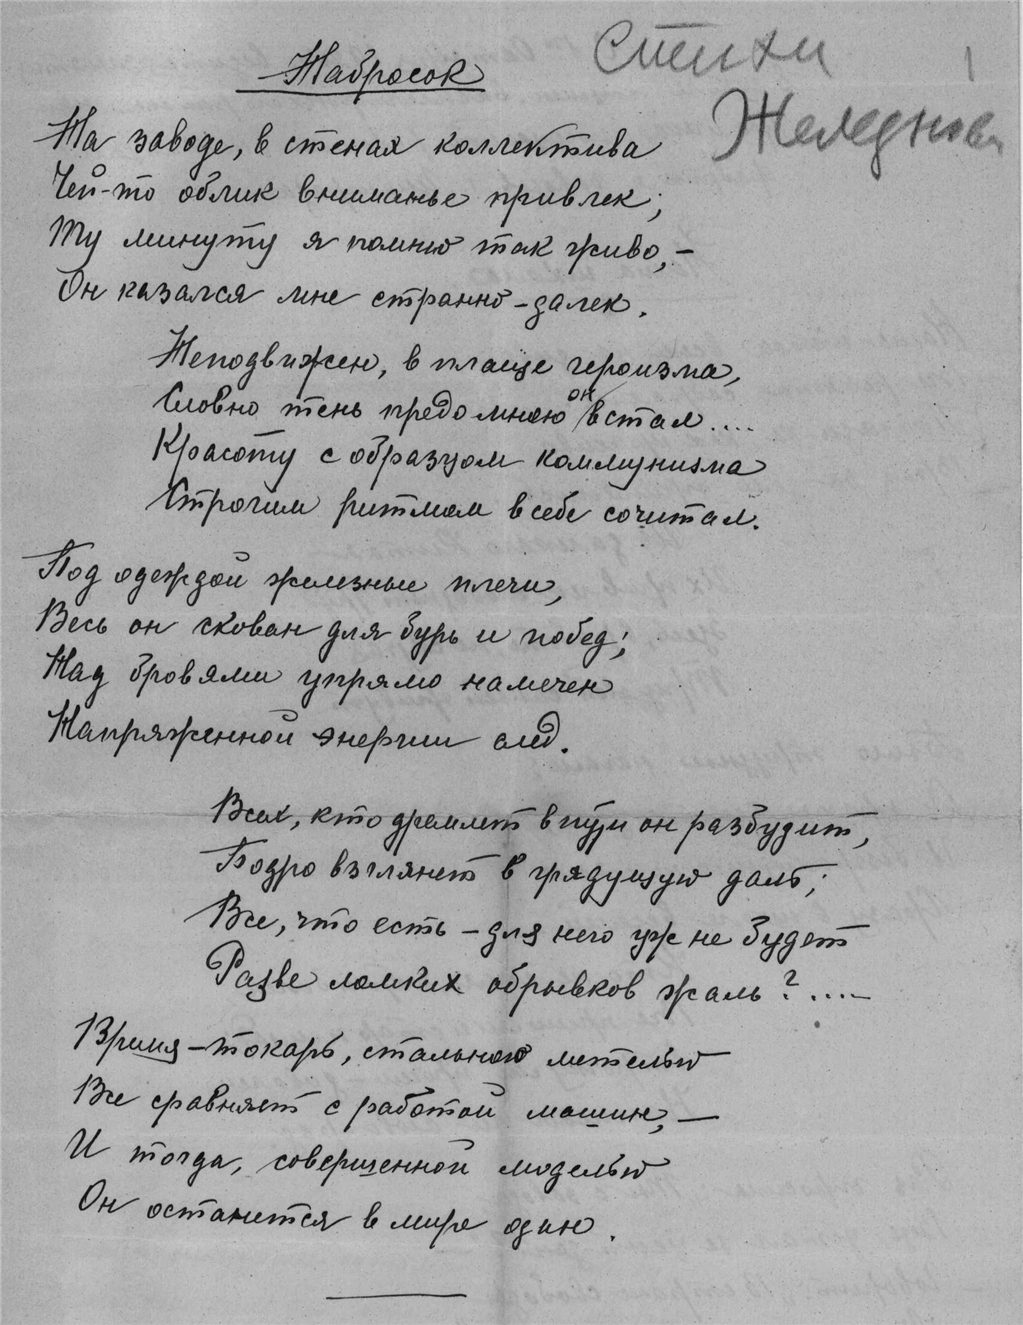 Стихи
1
Набросок
На заводе, в стенах коллектива
Чей-то облик вниманье привлек;
Ту минуту я помню так живо, –
Он казался мне странно-далек.
Неподвижен, в плаще героизма,
Словно тень предо мною он встал....
Красоту с образцом коммунизма
Строгим ритмом в себе сочитал.
Под одеждой железные плечи,
Весь он скован для бурь и побед;
Над бровями упрямо намечен
Напряженной энергии след.
Всех, кто дремлет в пути он разбудит,
Бодро взглянет в грядущую даль;
Все, что есть – для него уж не будет
Разве ломких обрывков жаль?....
Время – токарь, стальною метелью
Все сравняет с работой машин, –
И тогда, совершенной моделью
Он останется в мире один.